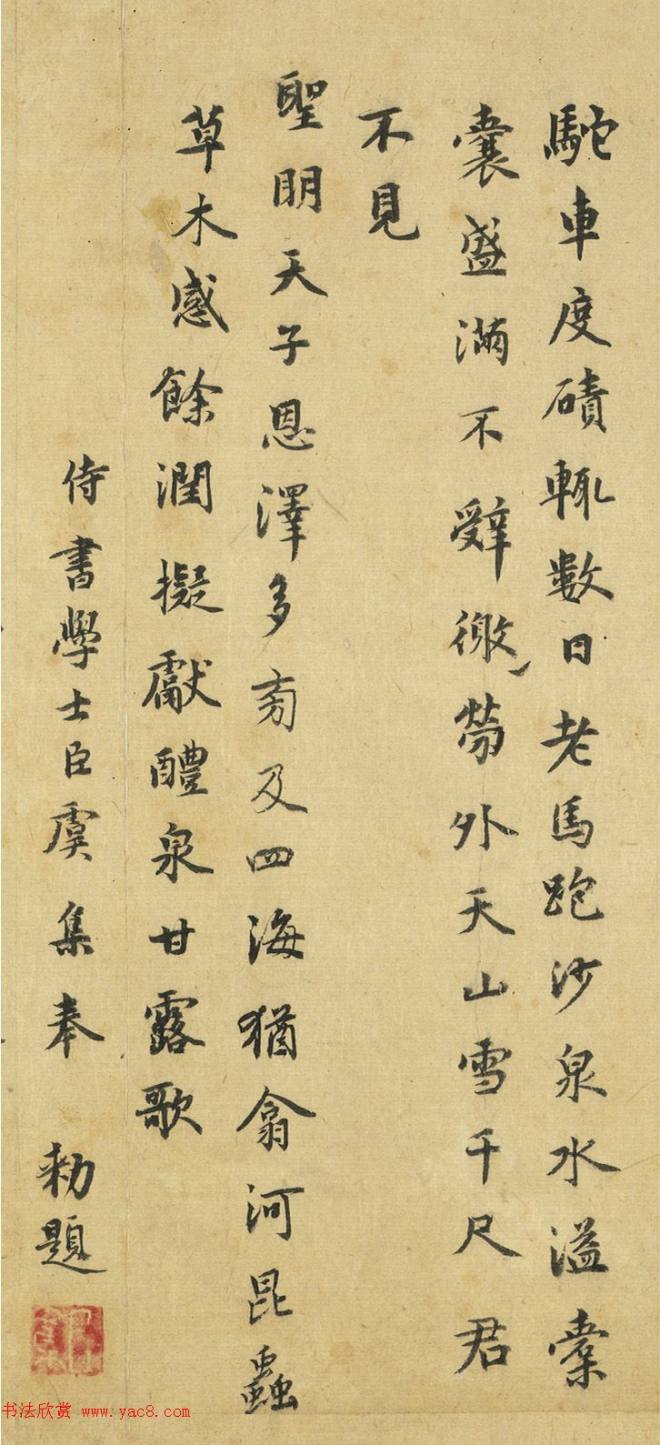 駝車度磧輒數日老馬跑沙泉水溢橐
囊盛滿不辭微勞外天山雪千尺君
不見
聖明天子恩澤多旁及四海猶翕河昆蟲
草木感餘潤擬獻醴泉甘露歌
侍書學士臣虞集奉 勑題
书法欣赏 www.yac8.com